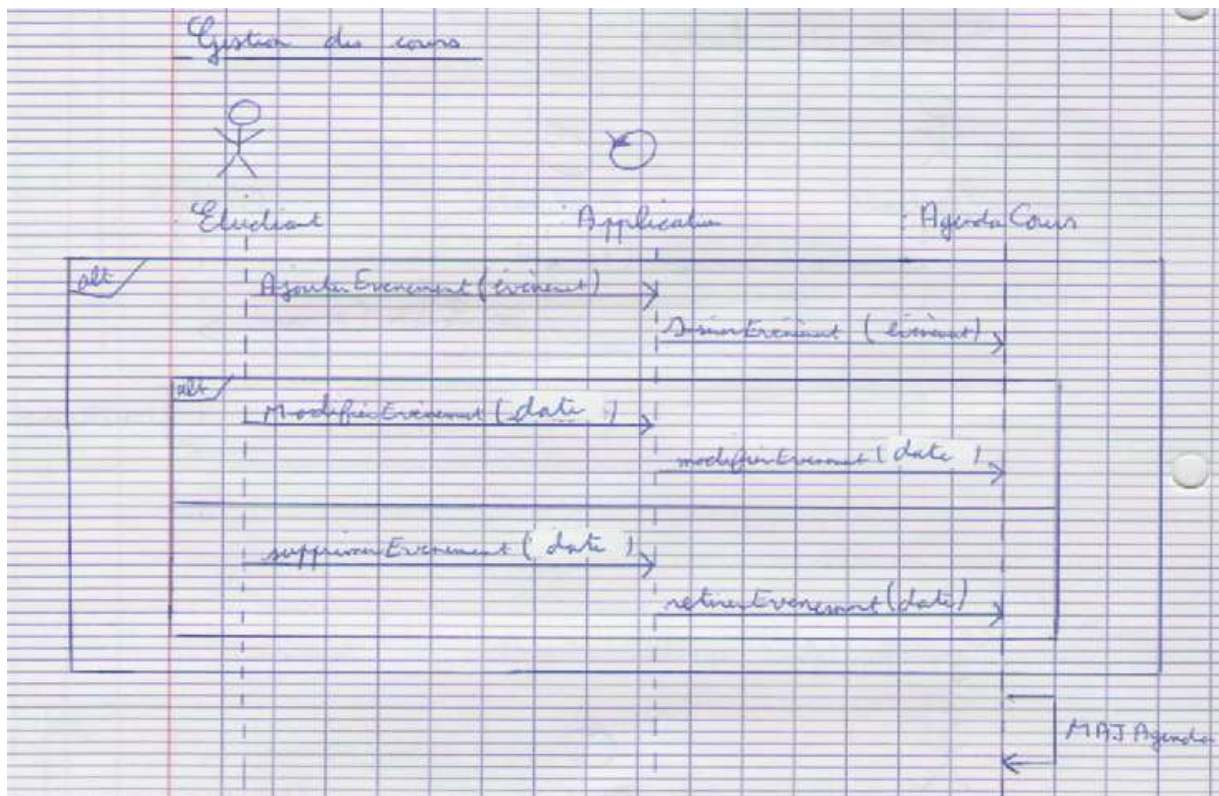 Gestion des cours
: Etudiant
: Application
: AgendaCours
alt
AjouterEvenement (évènement)
Evènement (évènement)
alt
ModifierEvènement (date )
modifierEvenement (date )
supprimerEvenement ( date )
retirerEvenement (date)
MAJAgenda